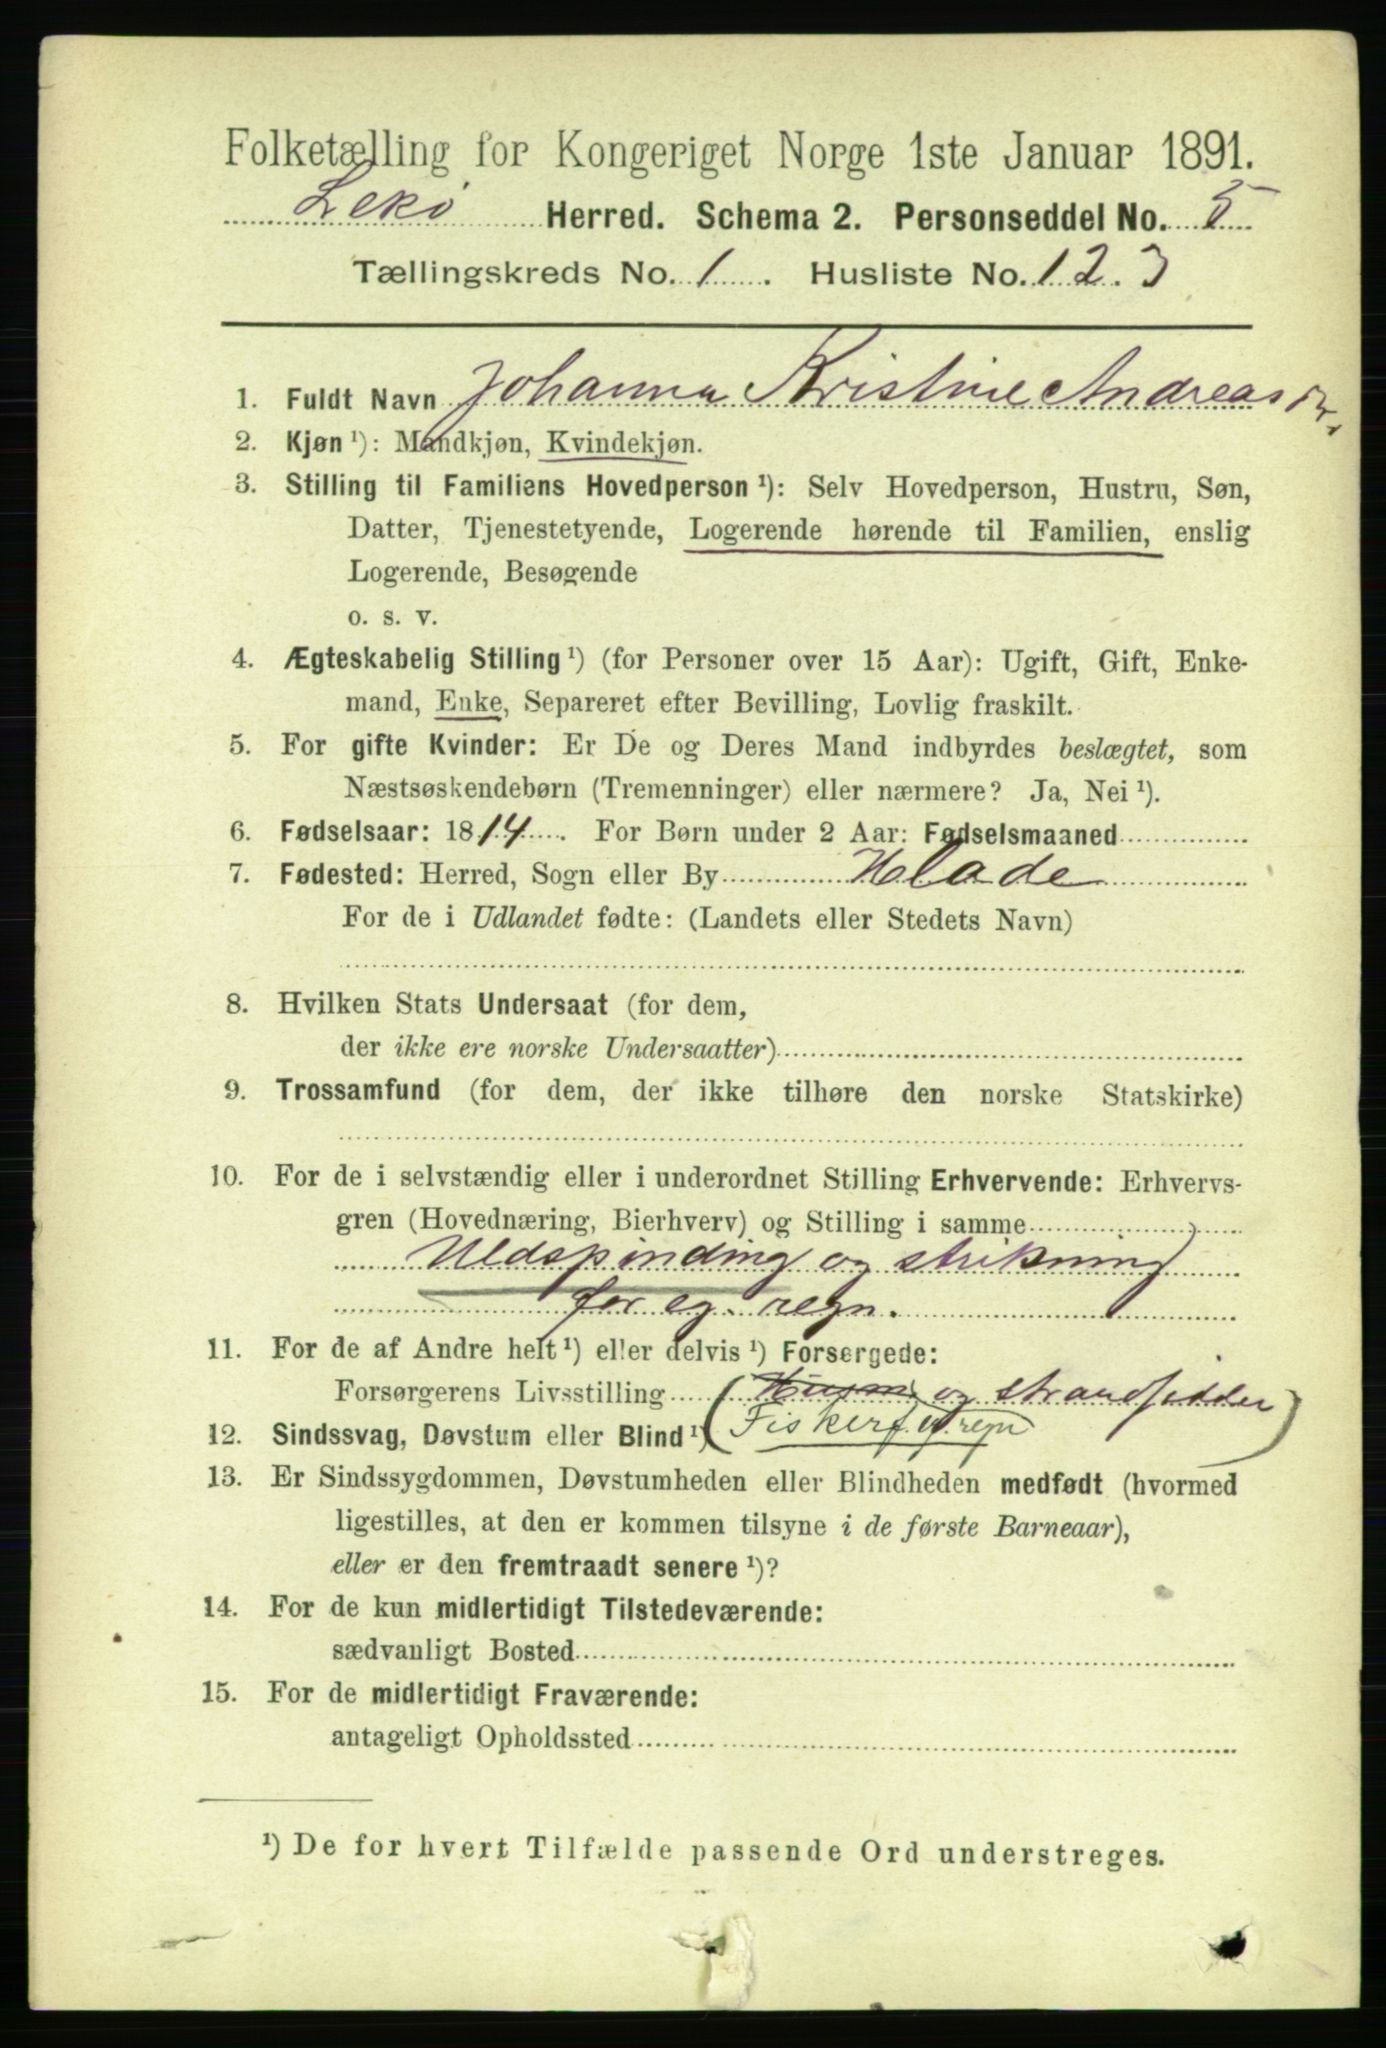 Folketælling for Kongeriget Norge 1ste Januar 1891.
Lekø Herred. Schema 2. Personseddel No. 5
Tællingskreds No. 1. Husliste No. 123
1. Fuldt Navn Johanna Kristine Andreasdtr.
2. Kjøn ¹): Mandkjøn, Kvindekjøn.
3. Stilling til Familiens Hovedperson ¹): Selv Hovedperson, Hustru, Søn,
Datter, Tjenestetyende, Logerende hørende til Familien, enslig
Logerende, Besøgende
o. s. v.
4. Ægteskabelig Stilling ¹) (for Personer over 15 Aar): Ugift, Gift, Enke-
mand, Enke, Separeret efter Bevilling, Lovlig fraskilt.
5. For gifte Kvinder: Er De og Deres Mand indbyrdes beslægtet, som
Næstsøskendebørn (Tremenninger) eller nærmere? Ja, Nei ¹).
6. Fødselsaar: 1814. For Børn under 2 Aar: Fødselsmaaned
7. Fødested: Herred, Sogn eller By Hlade
For de i Udlandet fødte: (Landets eller Stedets Navn)
8. Hvilken Stats Undersaat (for dem,
der ikke ere norske Undersaatter)
9. Trossamfund (for dem, der ikke tilhøre den norske Statskirke)
10. For de i selvstændig eller i underordnet Stilling Erhvervende: Erhvervs-
gren (Hovednæring, Bierhverv) og Stilling i samme
Uldspinding og strikning
for eg. regn.
11. For de af Andre helt ¹) eller delvis ¹) Forsørgede:
Forsørgerens Livsstilling (Husm. og strandsidder
12. Sindssvag, Døvstum eller Blind ¹) (Fisker f. eg. regn)
13. Er Sindssygdommen, Døvstumheden eller Blindheden medfødt (hvormed
ligestilles, at den er kommen tilsyne i de første Barneaar),
eller er den fremtraadt senere ¹)?
14. For de kun midlertidigt Tilstedeværende:
sædvanligt Bosted
15. For de midlertidigt Fraværende:
antageligt Opholdssted
¹) De for hvert Tilfælde passende Ord understreges.